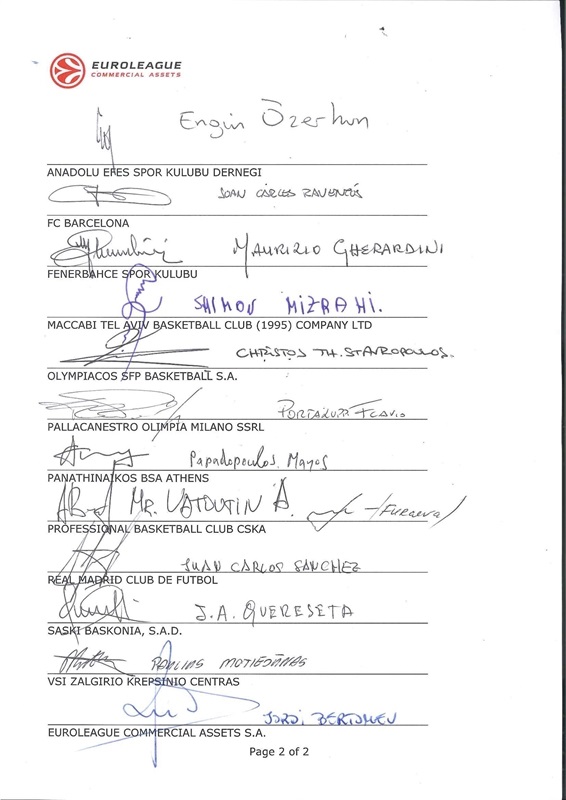 EUROLEAGUE
COMMERCIAL ASSETS
Engin Özerhun
ANADOLU EFES SPOR KULUBU DERNEGI
JOAN CARLES RAVENTÓS
FC BARCELONA
MAURIZIO GHERARDINI
FENERBAHCE SPOR KULUBU
SHIMON MIZRAHI.
MACCABI TEL AVIV BASKETBALL CLUB (1995) COMPANY LTD
CHRISTOS TH. STAVROPOULOS.
OLYMPIACOS SFP BASKETBALL S.A.
FLAVIO
PALLACANESTRO OLIMPIA MILANO SSRL
Papadopoulos Mayos
PANATHINAIKOS BSA ATHENS
MR. VATUTIN A.
PROFESSIONAL BASKETBALL CLUB CSKA
JUAN CARLOS SANCHEZ
REAL MADRID CLUB DE FUTBOL
J.A. QUEREJETA
SASKI BASKONIA, S.A.D.
PAULIUS MOTIEJŪNAS
VSI ZALGIRIO KREPSINIO CENTRAS
JORDI BERTOMEU
EUROLEAGUE COMMERCIAL ASSETS S.A.
Page 2 of 2